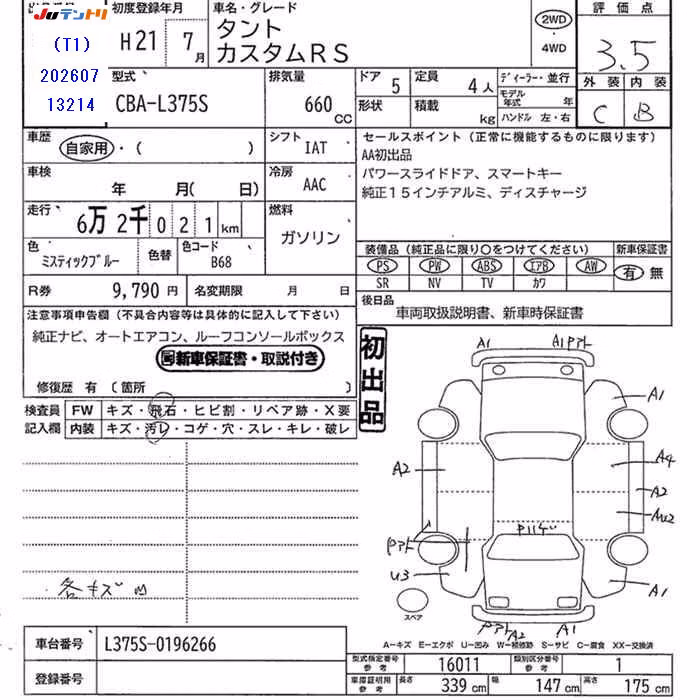 Juテントリ
(T1)
202607
13214
初度登録年月
H21 7月
車名・グレード
タント
カスタムRS
2WD
・
4WD
評価点
3.5
外装 内装
C B
型式
CBA-L375S
排気量
660 CC
ドア 5
形状
定員 4人
積載 kg
ディーラー・並行
モデル年式 年
ハンドル 左・右
車歴
自家用・( )
シフト IAT
セールスポイント(正常に機能するものに限ります)
AA初出品
パワースライドドア、スマートキー
純正15インチアルミ、ディスチャージ
車検
年 月(日)
冷房 AAC
走行
6万2千021km
燃料
ガソリン
色
ミスティックブルー
色替
色コード
B68
装備品(純品に限り○をつけてください)
新車保証書
PS PW ABS エアB AW
有・無
SR NV TV カワ
R券 9,790円
名変期限 月 日
後日品
車両取扱説明書、新車時保証書
注意事項申告欄(不具合内容等は具体的に記入して下さい)
純正ナビ、オートエアコン、ルーフコンソールボックス
新車保証書・取説付き
修復歴 有(箇所 )
初出品
検査員
記入欄
FW キズ・飛石・ヒビ割・リペア跡・X要
内装 キズ・汚レ・コゲ・穴・スレ・キレ・破レ
A1
A1
A1
A2
A4
A2
U3
A1
A2
スペア
A-キズ E-エクボ U-凹み W-補修跡 S-サビ C-腐食 XX-交換済
車台番号 L375S-0196266
登録番号
型式指定番号
参考
16011
類別区分番号
参考
1
車庫証明用
参考
長さ 339cm
幅 147cm
高さ 175cm